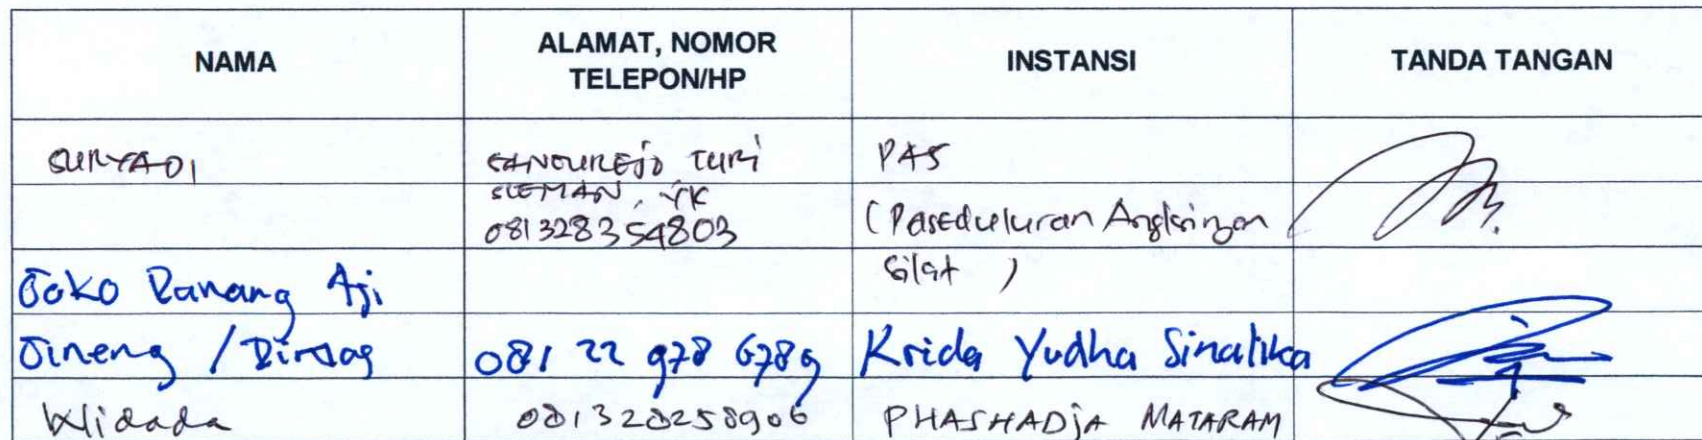 NAMA
ALAMAT, NOMOR TELEPON/HP
INSTANSI
TANDA TANGAN
SURYADI
TURI
SLEMAN, YK
081328354803
PAS
(Paseduluran Angkringan
Silat )
Joko Danang Aji
Jineng /
081 22 978 6789
Krida Yudha Sinalika
Widada
081328258906
PHASHADJA MATARAM